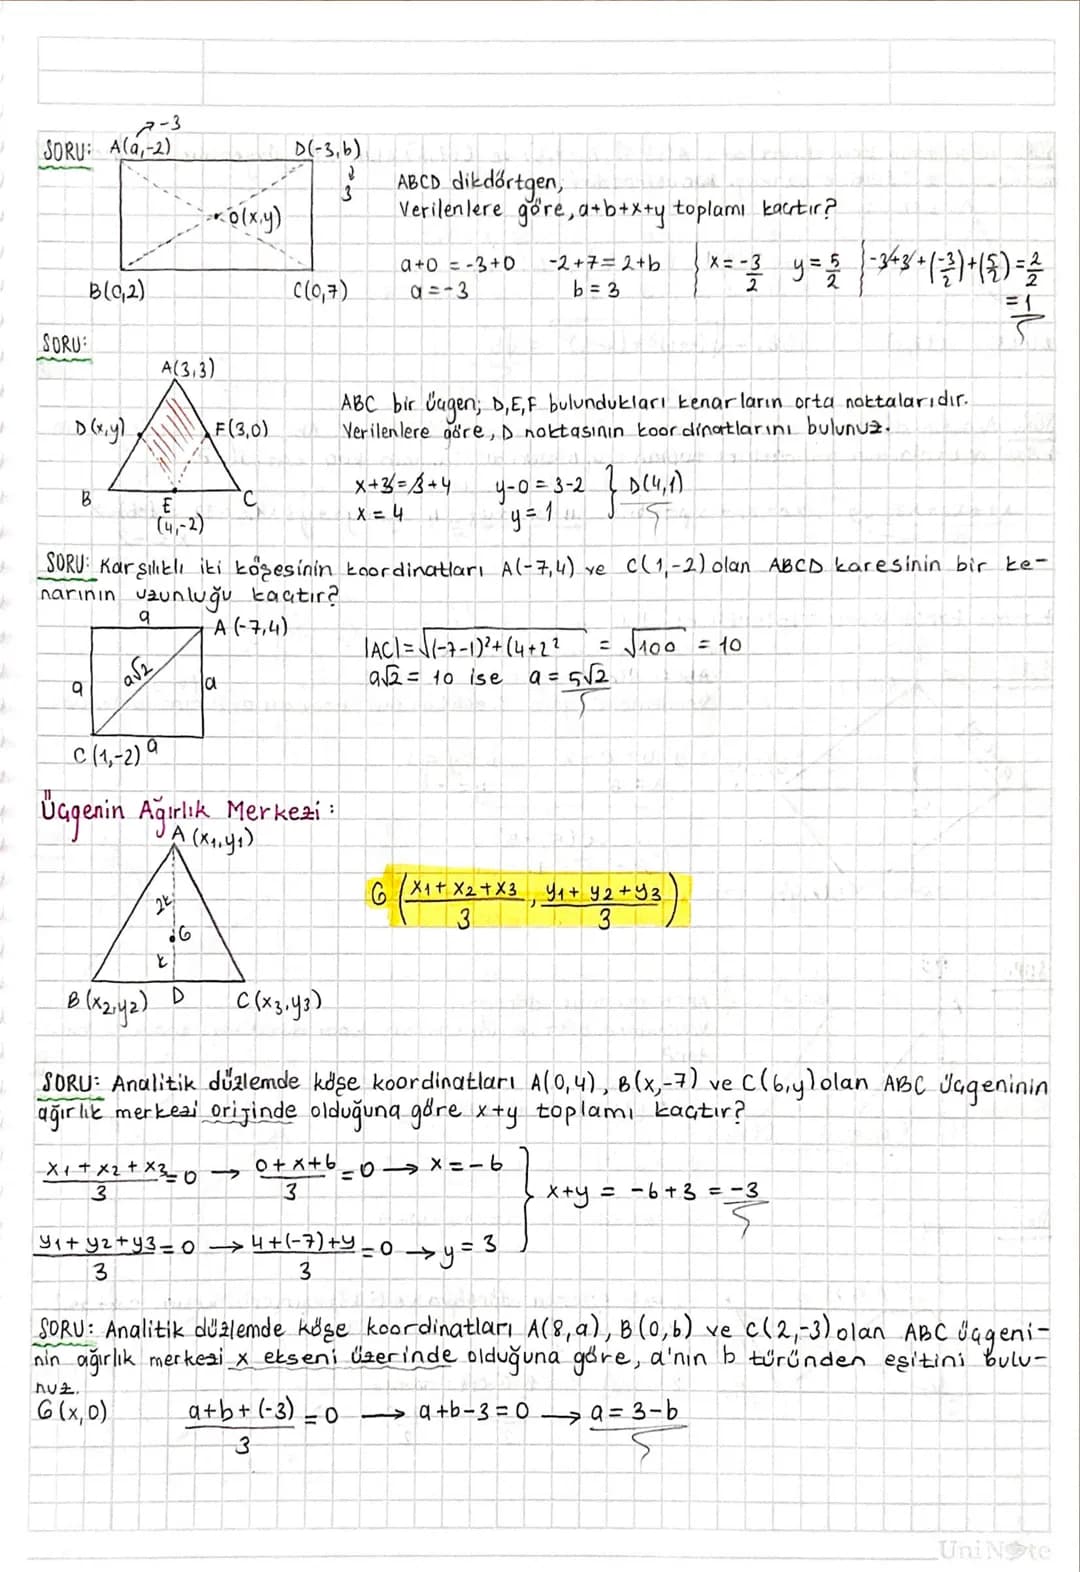 →-3
SORU: A(a,-2) D(-3,b)
↓
3
ABCD dikdörtgen,
O(x,y) Verilenlere göre, a+b+x+y toplamı kaçtır?
a+0 = -3+0 -2+7=2+b } x=-3/2 y=5/2 } -3+3+(-3/2)+(5/2)=2/2
B(0,2) C(0,7) a=-3 b=3
=1
SORU:
A(3,3)
ABC bir üçgen; D,E,F bulundukları kenarların orta noktalarıdır.
D(x,y) F(3,0) Verilenlere göre, D noktasının koordinatlarını bulunuz.
x+3=3+4 y-0=3-2 } D(4,1)
B E C x=4 y=1
(4,-2)
SORU: Karşılıklı iki köşesinin koordinatları A(-7,4) ve C(1,-2) olan ABCD karesinin bir ke-
narının uzunluğu kaçtır?
a A(-7,4)
|AC|=√(-7-1)²+(4+2² = √100 = 10
a a√2 a a√2 = 10 ise a = 5√2
C(1,-2) a
Üçgenin Ağırlık Merkezi:
A(x₁,y₁)
2k G (x₁+x₂+x₃/3, y₁+y₂+y₃/3)
G
k
B(x₂,y₂) D C(x₃,y₃)
SORU: Analitik düzlemde köşe koordinatları A(0,4), B(x,-7) ve C(6,y) olan ABC üçgeninin
ağırlık merkezi orijinde olduğuna göre x+y toplamı kaçtır?
x₁+x₂+x₃/3=0 → 0+x+6/3=0 → x=-6
} x+y = -6+3 = -3
y₁+y₂+y₃/3=0 → 4+(-7)+y/3=0 → y=3
SORU: Analitik düzlemde köşe koordinatları A(8,a), B(0,b) ve C(2,-3) olan ABC üçgeni-
nin ağırlık merkezi x ekseni üzerinde olduğuna göre, a'nın b türünden eşitini bulu-
nuz.
G(x,0) a+b+(-3)/3=0 → a+b-3=0 → a=3-b
UniNote